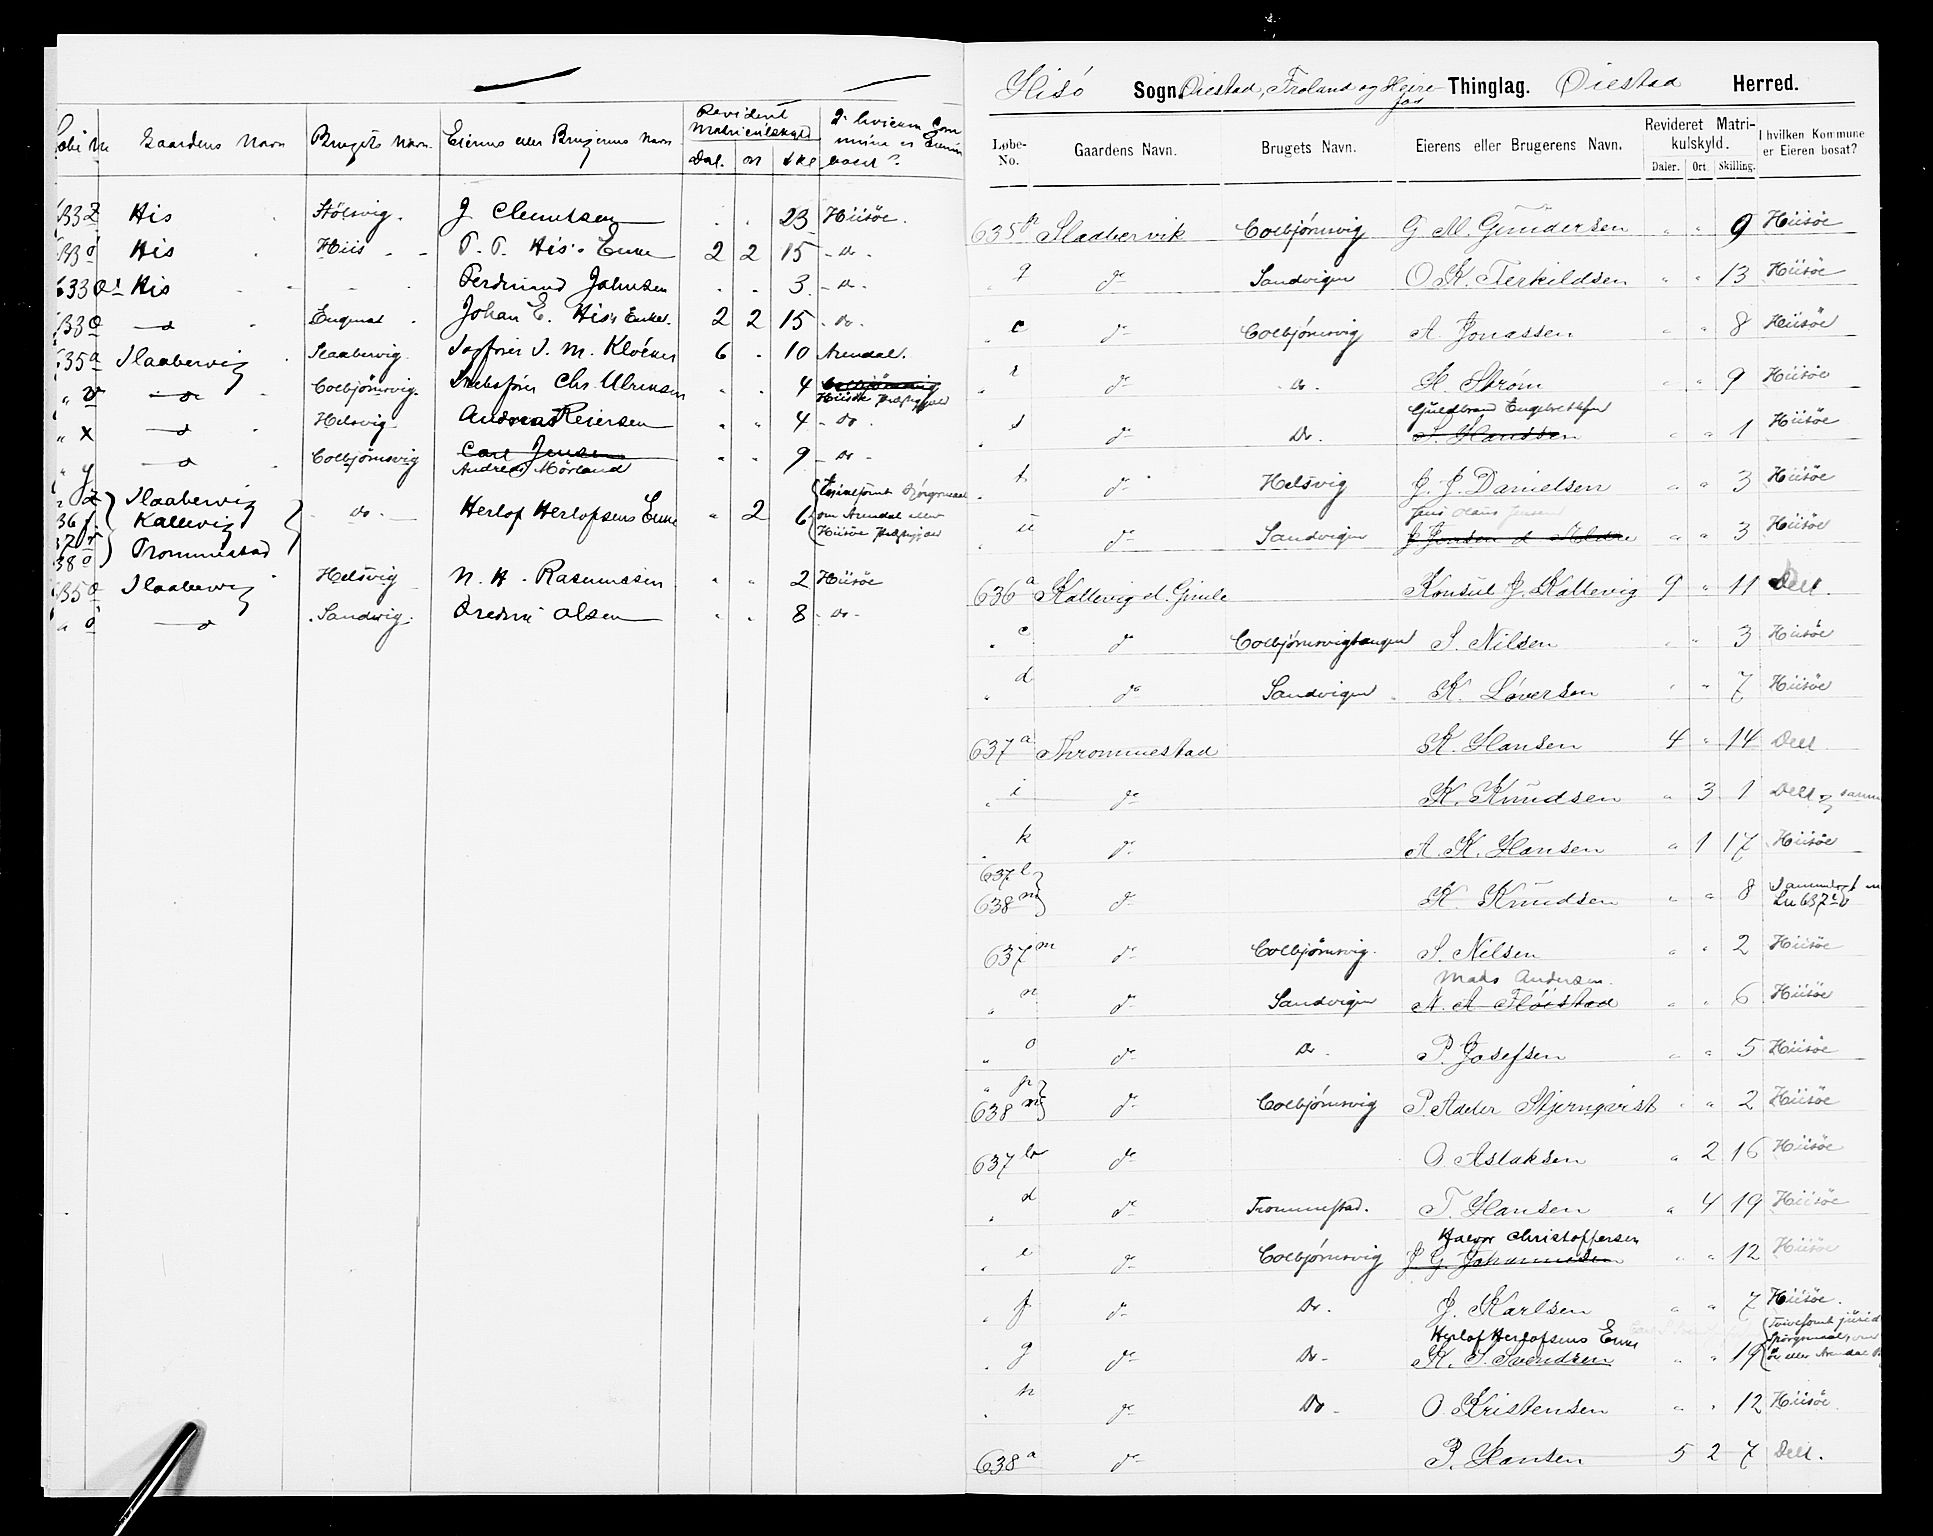 Gaardens Navn Brugets Navn. Eierens eller Brugerens Navn Revideret Matriculskyld Dal. ort Skl I hvilken Commune er Eieren bosat?
His Stölsvig. J. Clemetsen 23 Hiisöe.
His Hiis T. T. His's Enke 2 2 15 - Do -
633 His Ferdinand Johnsen 3 - Do -
Johan E. His's Enke. 2 2 15 - Do.
635a Slaabervig Slaabervig. J. M. Klöcker 6 . 10 Arendal.
" v Do Colbjörnsvig. Chr. Ulriksen 4 Colbjörnsvig
Hiisöe Præstegjeld
" x Do Helsvig. Andreas Reiersen " " 4 - Do -
" y Do Colbjörnsvig Carl Jensen " " 9 - Do -
Andreas Mörland
z Slaabervig
36 f. Kallevig Do. Herlof Herlofsens Enke " 2 6 om Arendal eller
Trommestad Hiisöe Præstegjeld
Slaabervig Helsvig N. A. Rasmussen " " 2 Hiisöe
" ö Do Sandvig. Olsen " " 8 - Do -
Hisö Sogn. Öiestad, Froland og Heire- Thinglag. Öiestad Herred.
Løbe-No. Gaardens Navn. Brugets Navn. Eierens eller Brugerens Navn. Revideret Matrikulskyld. Daler. Ort. Skilling. I hvilken Kommune er Eieren bosat?
635 p Sladbervik Colbjörnsvig G. M. Gundersen " " 9 Hiisöe
" q do Sandvigen O. K. Terkildsen " " 13 Hiisöe
" c do Colbjörnsvig A. Jonassen " " 8 Hiisöe
" r do Do. H. Ström " " 9 Hiisöe
Guldbrand Engebretsen
" s do Do. S. Hanssen " " 1 Hiisöe
" t do Helsvig J. J. Danielsen " " 3 Hiisöe
Jens Olaus Jensen
" u do Sandvigen J. Jensen d. Ældre " " 3 Hiisöe
636 a Kallevig d. Gimle Konsul J. Kallevig 9 " 11 Dell.
" c do Colbjörnsvigtangen S. Nilsen " " 3 Hiisöe
" d do Sandvigen K. Löversen " " 7 Hiisöe
637 a Thrommestad K. Hansen 4 " 14 Dell
" i do K. Knudsen " 3 1 Dell
" k do A. K. Hansen " 1 17 Hiisöe
637 l
638 n do K. Knudsen " " 8 Ln 637
637 m do Colbjörnsvig. S. Nilsen " " 2 Hiisöe
Mads Andersen.
" n do Sandvigen N. A. Flöistad " " 6 Hiisöe
" o do Do. P. Josefsen " " 5 Hiisöe
" p
638 m do Colbjörnsvig P. Adeler Stjernqvist " " 2 Hiisöe
637 b do O. Aslaksen " 2 16 Hiisöe
" d do Trommestad. T. Hansen " 4 19 Hiisöe
Halvor Christoffersen
" e do Colbjörnsvig J. G. Johannessen " " 12 Hiisöe
" f do Do. J. Karlsen " " 7 Hiisöe.
Herlof Herlofsens Enke
" g do Do. K. S. Svendsen " " 19 eller Arendal
" h do Do. O. Kristensen " " 12 Hiisöe.
638 a do P. Hansen 5 2 7 Dell.